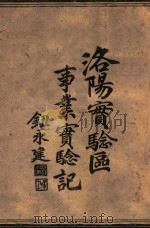 洛陽實驗區
事業實驗記
鈕永建